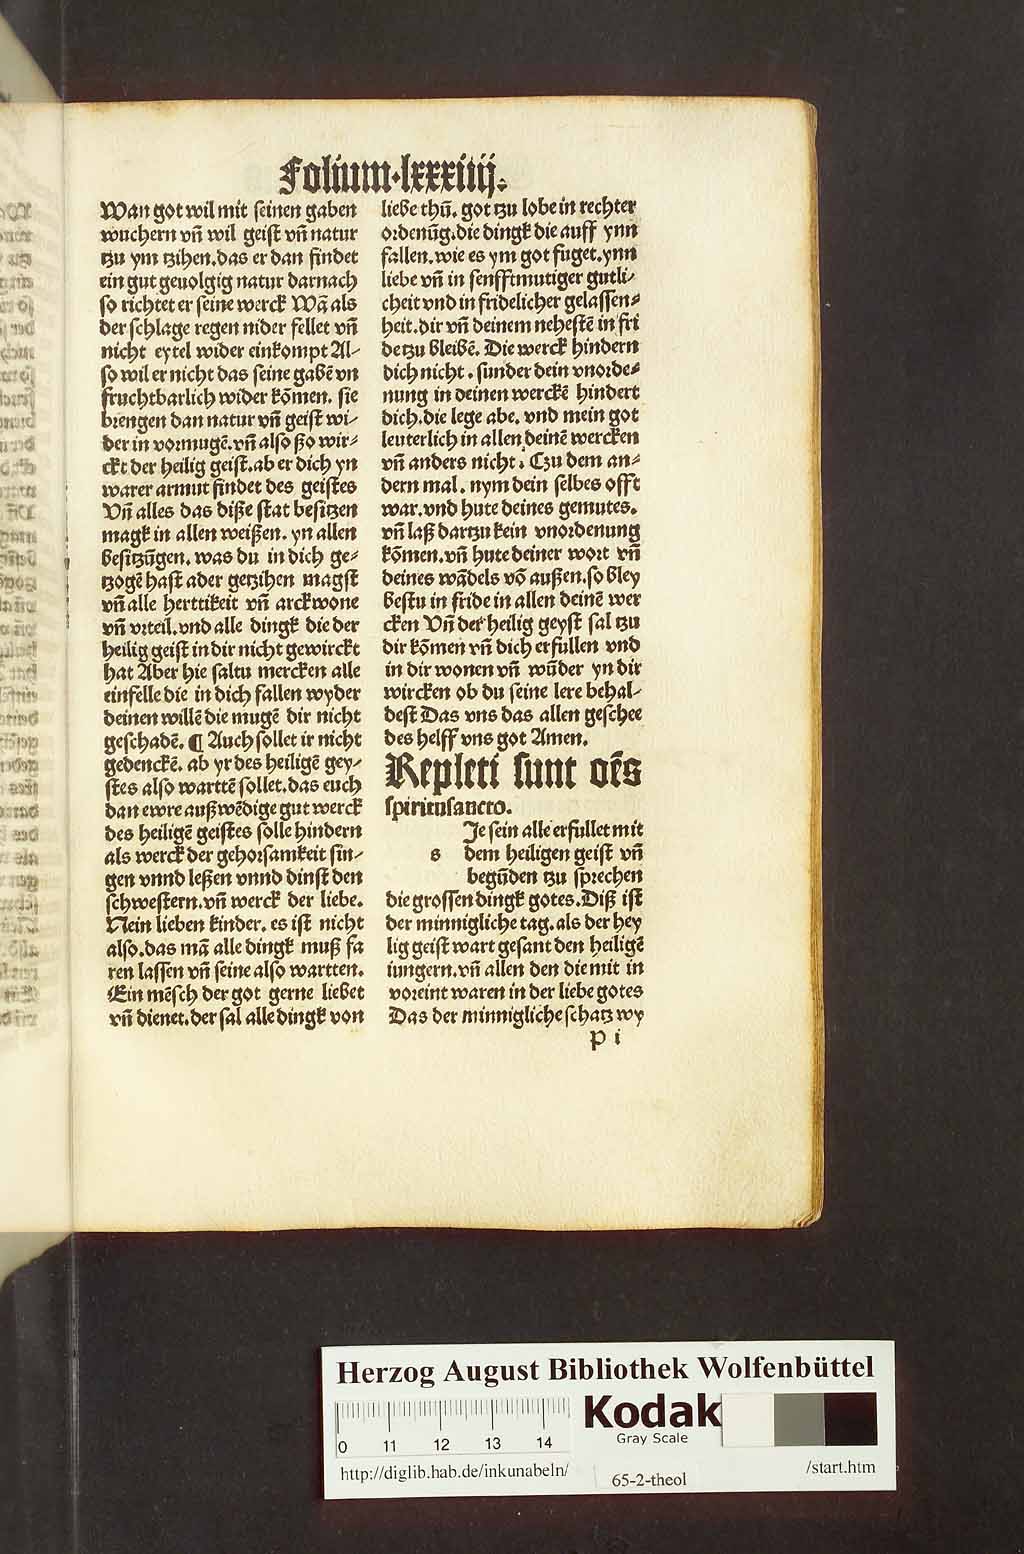 Folium·lxxxiiij.
Wan got wil mit seinen gaben
wuchern vñ wil geist vñ natur
tzu ym tzihen.das er dan findet
ein gut geuolgig natur darnach
so richtet er seine werck Wā als
der schlage regen nider fellet vñ
nicht eytel wider einkompt Al-
so wil er nicht das seine gabē vn
fruchtbarlich wider kōmen. sie
brengen dan natur vñ geist wi-
der in vormugē.vñ also ßo wir-
ckt der heilig geist.ab er dich yn
warer armut findet des geistes
Vñ alles das diße stat besitzen
magk in allen weißen. yn allen
besitzūgen. was du in dich ge-
tzogē hast ader getzihen magst
vñ alle herttikeit vñ arckwone
vñ vrteil.vnd alle dingk die der
heilig geist in dir nicht gewirckt
hat Aber hie saltu mercken alle
einfelle die in dich fallen wyder
deinen willē die mugē dir nicht
geschadē. ¶ Auch sollet ir nicht
gedenckē. ab yr des heiligē gey-
stes also warttē sollet.das euch
dan ewre außwēdige gut werck
des heiligē geistes solle hindern
als werck der gehorsamkeit sin-
gen vnnd leßen vnnd dinst den
schwestern.vñ werck der liebe.
Nein lieben kinder. es ist nicht
also.das mā alle dingk muß fa
ren lassen vñ seine also wartten.
Ein mēsch der got gerne liebet
vñ dienet.der sal alle dingk von
liebe thū. got tzu lobe in rechter
ordenūg.die dingk die auff ynn
fallen.wie es ym got fuget.ynn
liebe vñ in senfftmutiger gutli-
cheit vnd in fridelicher gelassen-
heit.dir vñ deinem nehestē in fri
de tzu bleibē. Die werck hindern
dich nicht. sunder dein vnorde-
nung in deinen werckē hindert
dich.die lege abe. vnd mein got
leuterlich in allen deinē wercken
vñ anders nicht. Czu dem an-
dern mal. nym dein selbes offt
war.vnd hute deines gemutes.
vñ laß dartzu kein vnordenung
kōmen.vñ hute deiner wort vñ
deines wādels vō außen.so bley
bestu in fride in allen deinē wer
cken Vñ der heilig geyst sal tzu
dir kōmen vñ dich erfullen vnd
in dir wonen vñ wūder yn dir
wircken ob du seine lere behal-
dest Das vns das allen geschee
des helff vns got Amen.
Repleti sunt oēs
spiritusancto.
s Je sein alle erfullet mit
dem heiligen geist vñ
begūden tzu sprechen
die grossen dingk gotes.Diß ist
der minnigliche tag.als der hey
lig geist wart gesant den heiligē
iungern.vñ allen den die mit in
voreint waren in der liebe gotes
Das der minnigliche schatz wy
P i
Herzog August Bibliothek Wolfenbüttel
0 11 12 13 14
Kodak
Gray Scale
http://diglib.hab.de/inkunabeln/
65-2-theol
/start.htm